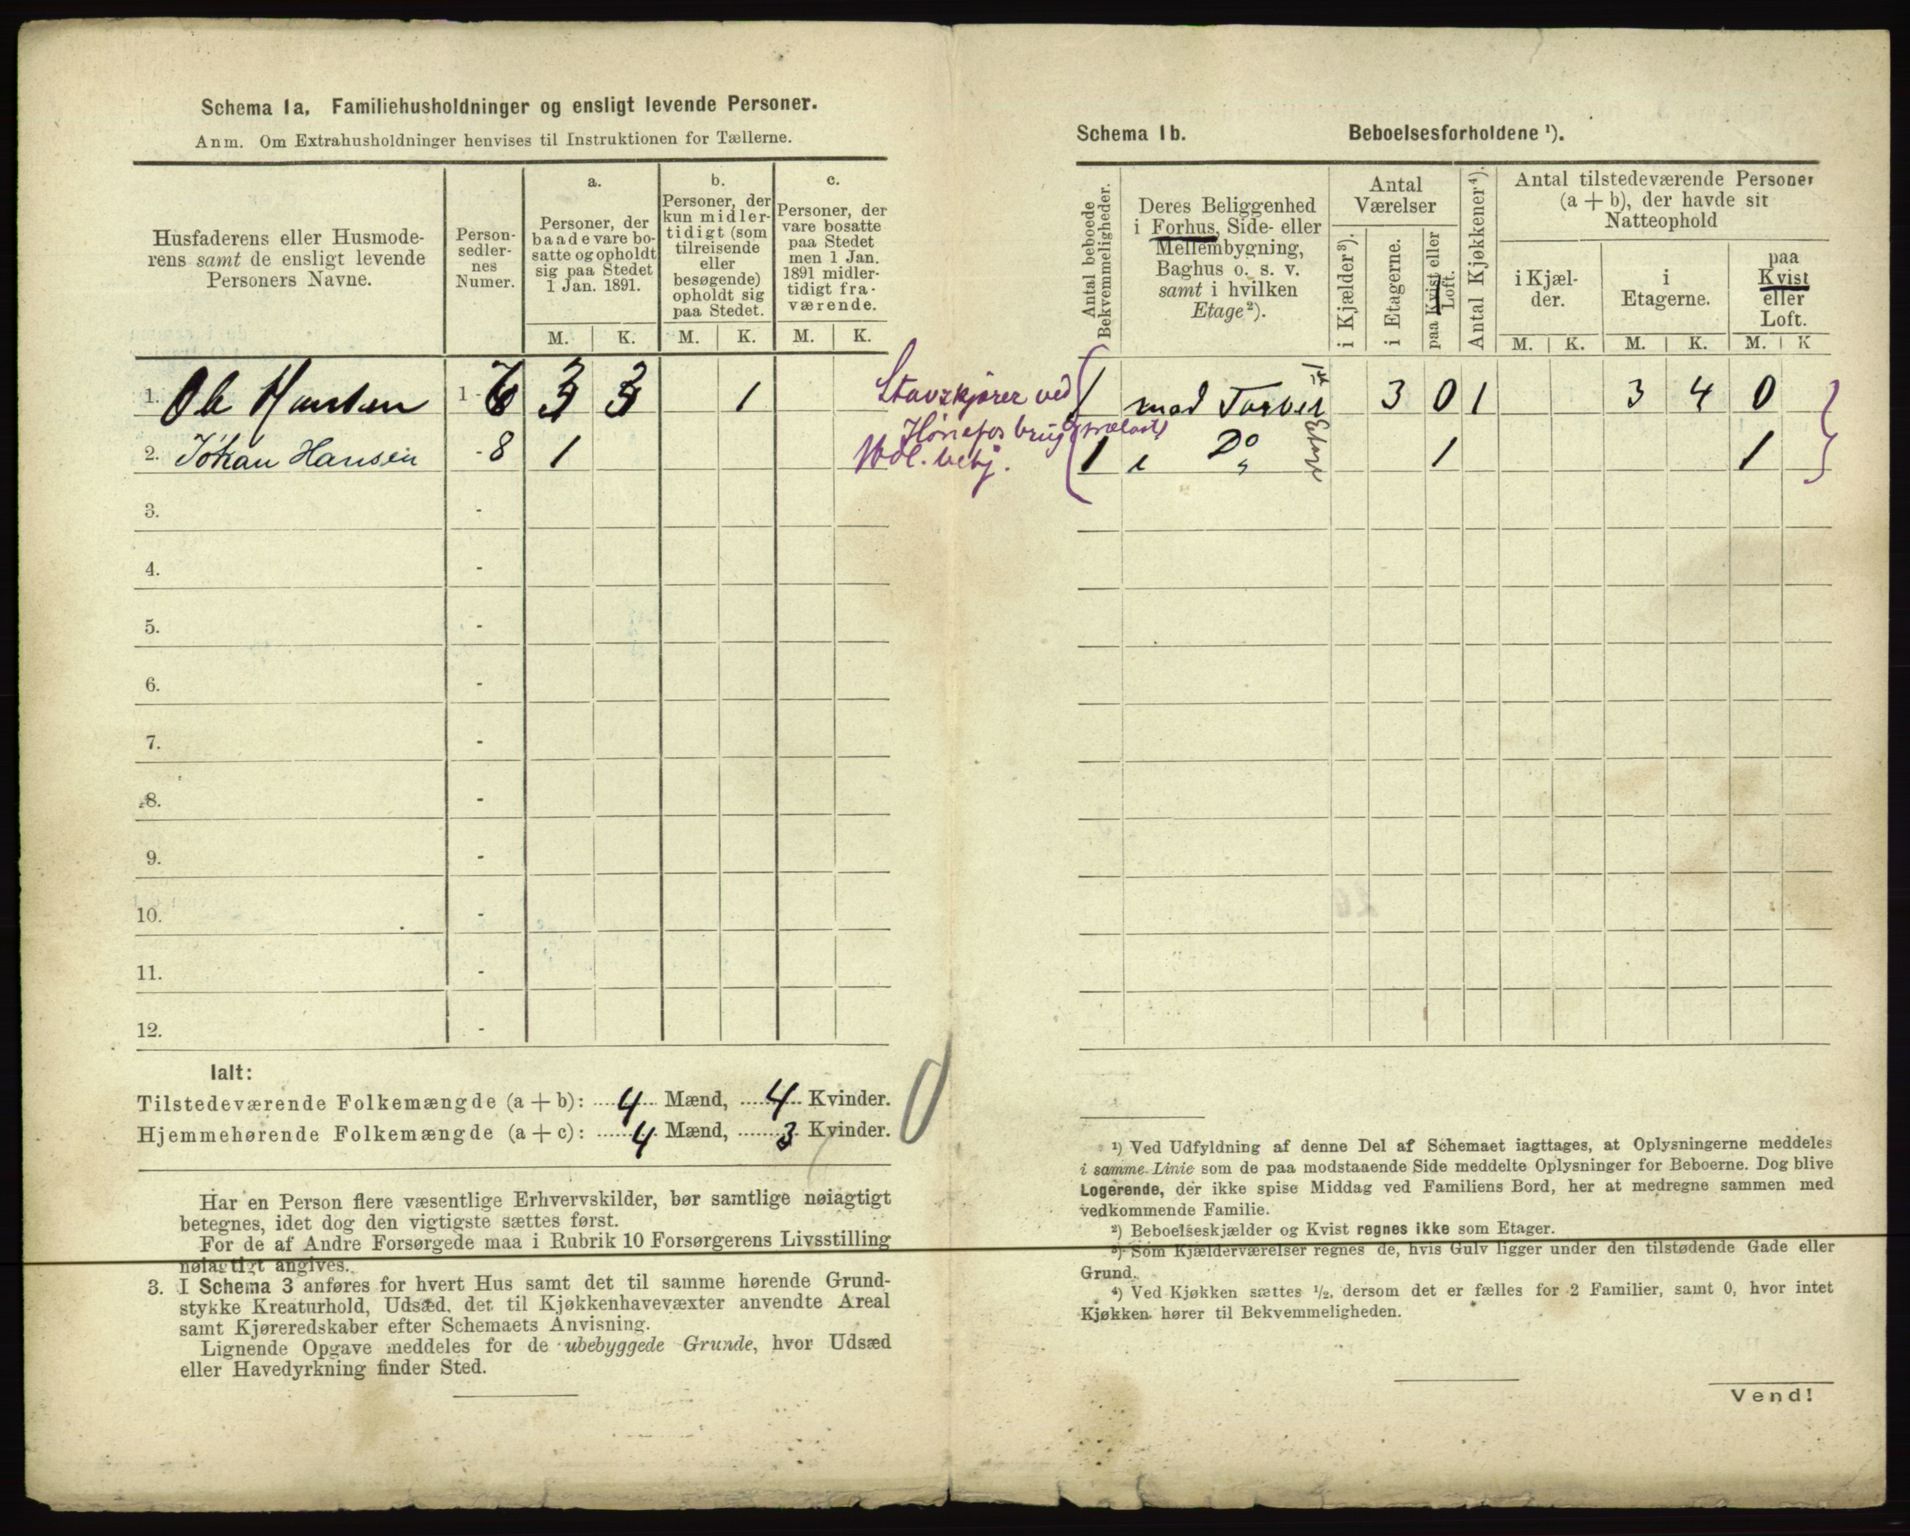 Schema 1a. Familiehusholdninger og ensligt levende Personer.
Anm. Om Extrahusholdninger henvises til Instruktionen for Tællerne.
Husfaderens eller Husmode-
rens samt de ensligt levende
Personers Navne.
Person-
sedler-
nes
Numer.
a.
Personer, der
baade vare bo-
satte og opholdt
sig paa Stedet
1 Jan. 1891.
b.
Personer, der
kun midler-
tidigt (som
tilreisende
eller
besøgende)
opholdt sig
paa Stedet.
c.
Personer, der
vare bosatte
paa Stedet
men 1 Jan.
1891 midler-
tidigt fra-
værende.
M. K. M. K. M. K.
1. Ole Hansen 1 - 3 3 1
2. Johan Hansen - 8 1
3. -
4. -
5. -
6. -
7. -
8. -
9. -
10. -
11. -
12. -
Ialt:
Tilstedeværende Folkemængde (a + b): 4 Mænd, 4 Kvinder.
Hjemmehørende Folkemængde (a + c): 4 Mænd, 3 Kvinder.
Har en Person flere væsentlige Erhvervskilder, bør samtlige nøiagtigt
betegnes, idet dog den vigtigste sættes først.
For de af Andre Forsørgede maa i Rubrik 10 Forsørgerens Livsstilling
nøiagtigt angives.
3. I Schema 3 anføres for hvert Hus samt det til samme hørende Grund-
stykke Kreaturhold, Udsæd, det til Kjøkkenhavevæxter anvendte Areal
samt Kjøreredskaber efter Schemaets Anvisning.
Lignende Opgave meddeles for de ubebyggede Grunde, hvor Udsæd
eller Havedyrkning finder Sted.
Schema 1b. Beboelsesforholdene ¹).
Antal beboede
Bekvemmeligheder.
Deres Beliggenhed
i Forhus, Side- eller
Mellembygning,
Baghus o. s. v.
samt i hvilken
Etage ²).
Antal
Værelser
i Kjælder ³).
i Etagerne.
paa Kvist eller
Loft.
Antal Kjøkkener ⁴).
Antal tilstedeværende Personer
(a + b), der havde sit
Natteophold
i Kjæl-
der.
i
Etagerne.
paa
Kvist
eller
Loft.
M. K. M. K. M. K
ved
Hønefos brug
1 mod Torvet 3 0 1 3 4 0
1 i Do 1 1
¹) Ved Udfyldning af denne Del af Schemaet iagttages, at Oplysningerne meddeles
i samme Linie som de paa modstaaende Side meddelte Oplysninger for Beboerne. Dog blive
Logerende, der ikke spise Middag ved Familiens Bord, her at medregne sammen med
vedkommende Familie.
²) Beboelseskjælder og Kvist regnes ikke som Etager.
³) Som Kjælderværelser regnes de, hvis Gulv ligger under den tilstødende Gade eller
Grund.
⁴) Ved Kjøkken sættes ½, dersom det er fælles for 2 Familier, samt 0, hvor intet
Kjøkken hører til Bekvemmeligheden.
Vend!